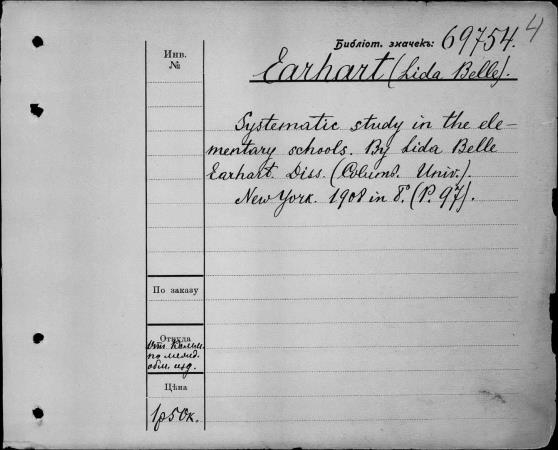 4
Библіот. значекъ: 69754.
Инв.
№
Earhart (Lida Belle).
Systematic study in the ele-
mentary schools. By Lida Belle
Earhart. Diss. (Columb. Univ.).
New York. 1908 in 8° (P. 97).
По заказу
Откуда
по межд.
обм. изд.
Цѣна
1р50к.